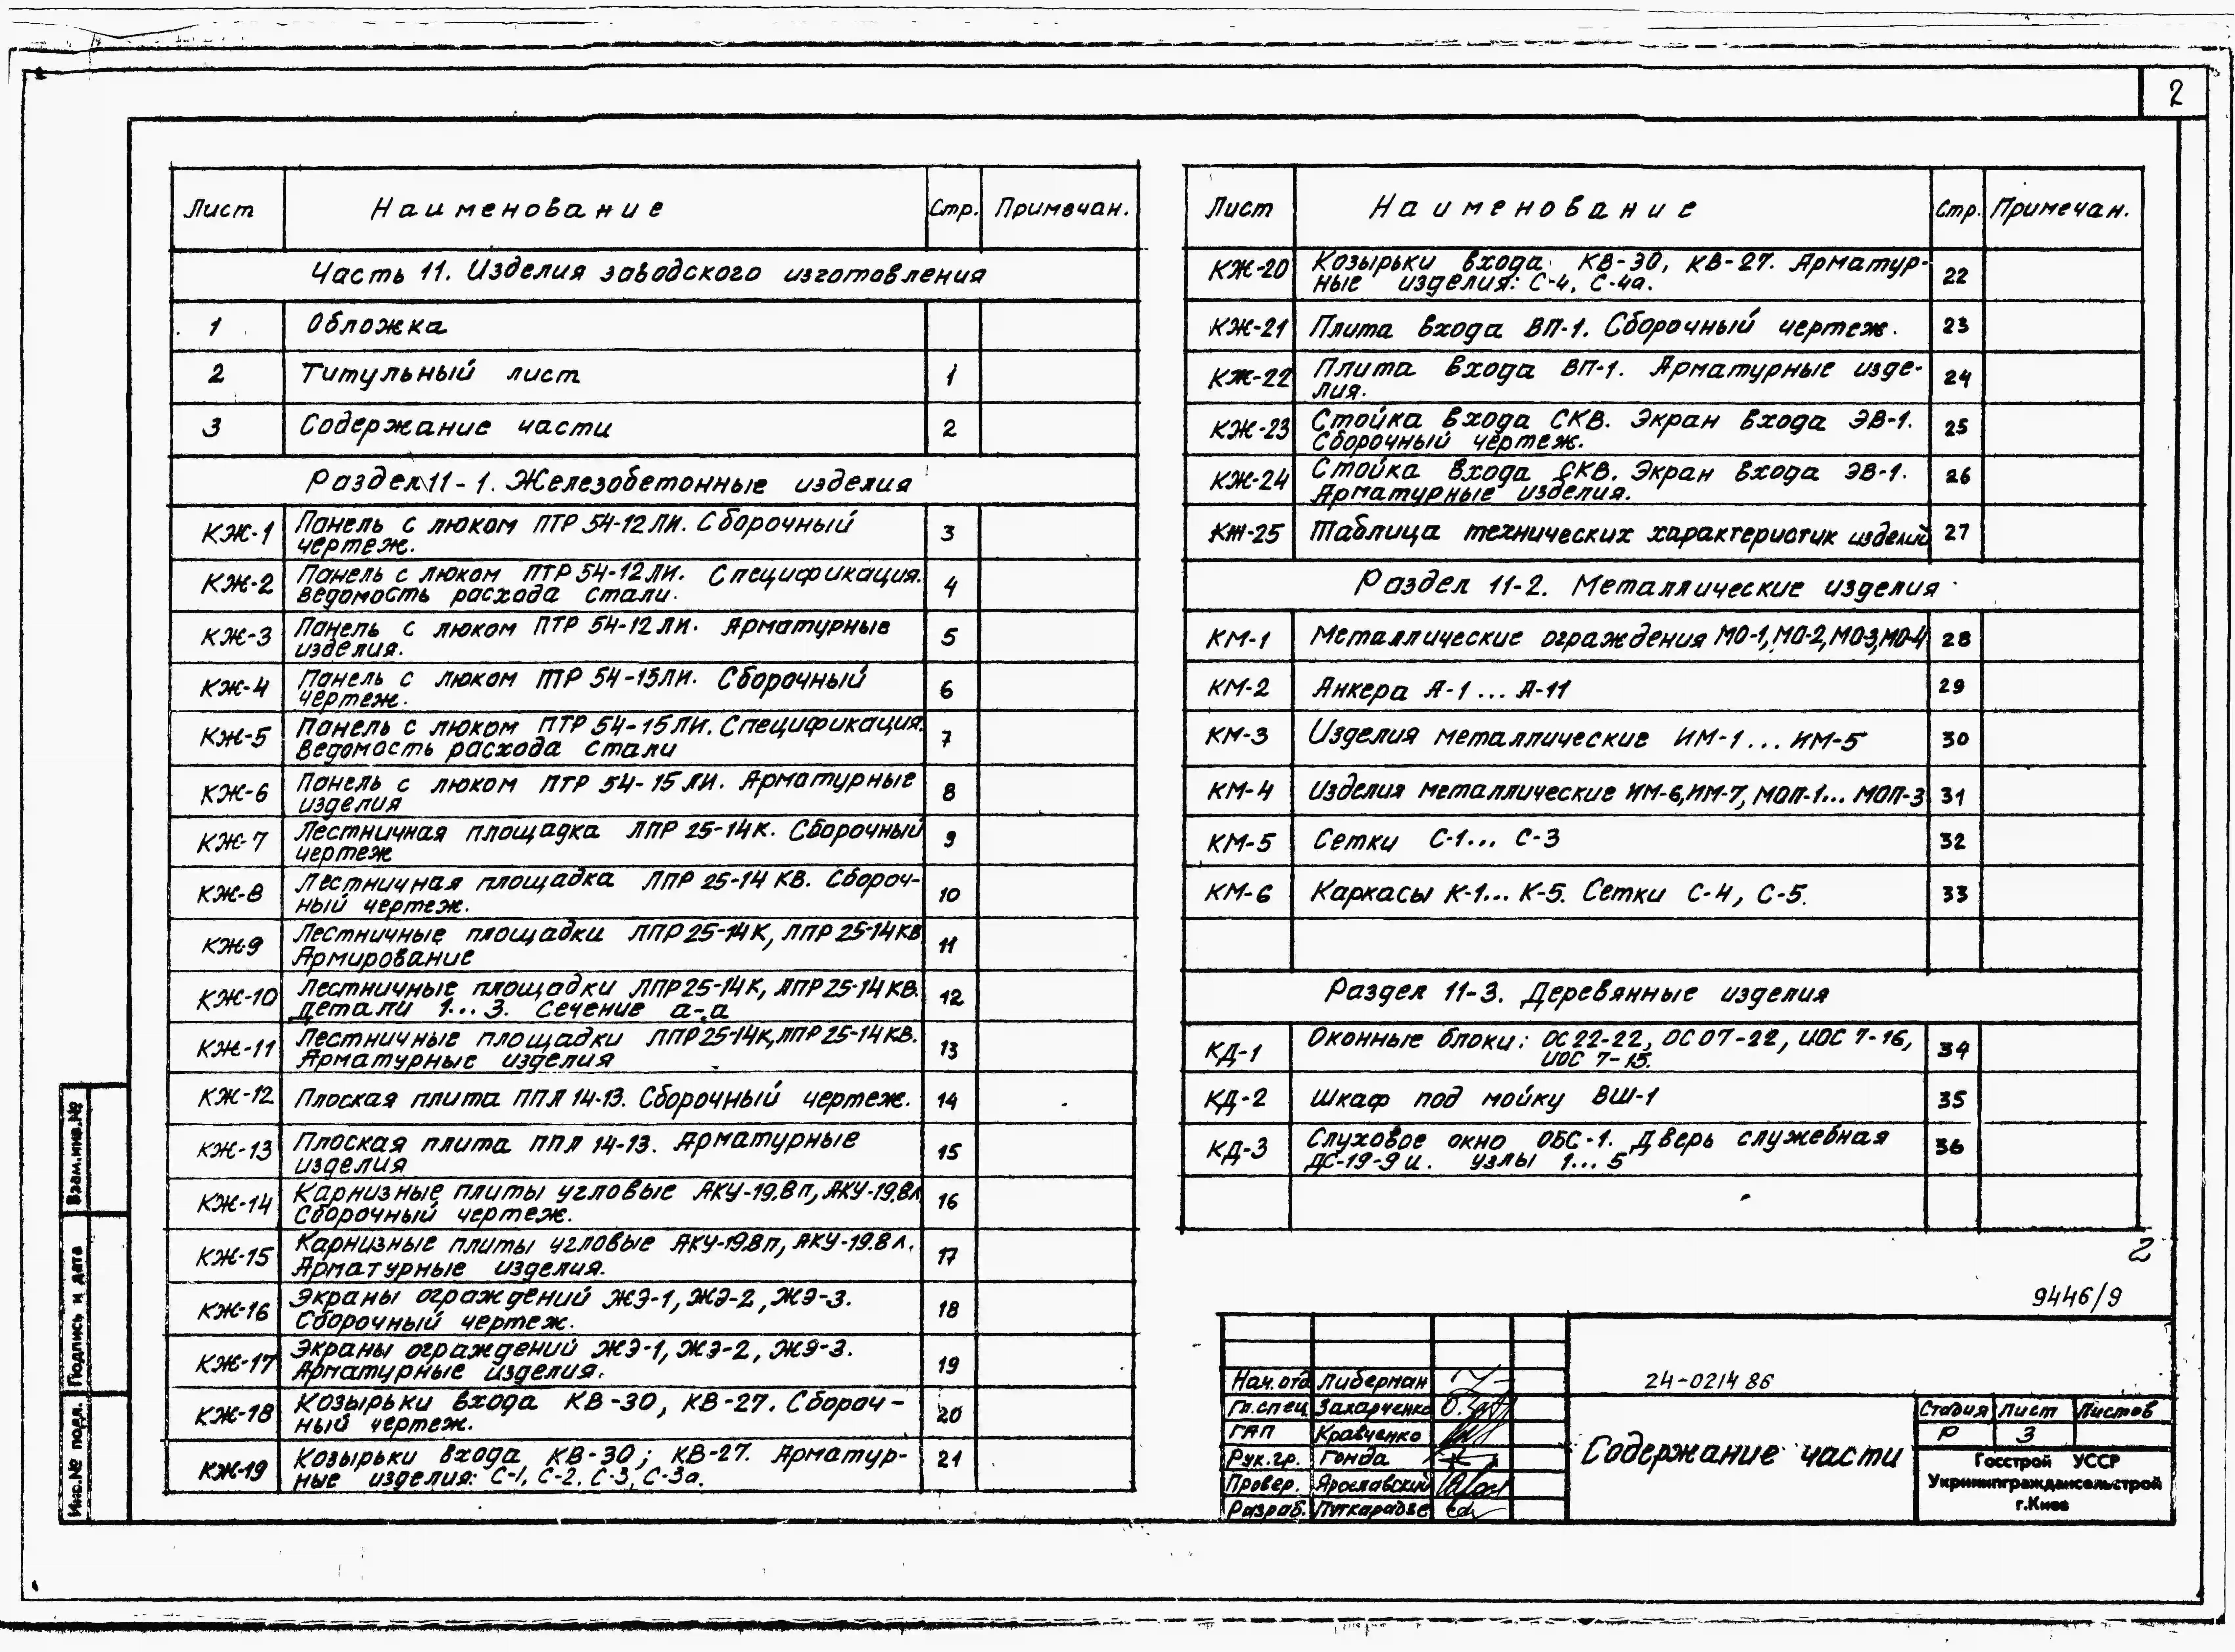 2
Лист Наименование Стр. Примечан.
Часть 11. Изделия заводского изготовления
1 Обложка
2 Титульный лист 1
3 Содержание части 2
Раздел 11-1. Железобетонные изделия
КЖ-1 Панель с люком ПТР 54-12ЛИ. Сборочный 3
чертеж.
КЖ-2 Панель с люком ПТР 54-12ЛИ. Спецификация. 4
Ведомость расхода стали.
КЖ-3 Панель с люком ПТР 54-12ЛИ. Арматурные 5
изделия.
КЖ-4 Панель с люком ПТР 54-15ЛИ. Сборочный 6
чертеж.
КЖ-5 Панель с люком ПТР 54-15ЛИ. Спецификация. 7
Ведомость расхода стали
КЖ-6 Панель с люком ПТР 54-15ЛИ. Арматурные 8
изделия
КЖ-7 Лестничная площадка ЛПР 25-14К. Сборочный 9
чертеж
КЖ-8 Лестничная площадка ЛПР 25-14КВ. Сбороч- 10
ный чертеж.
КЖ-9 Лестничные площадки ЛПР 25-14К, ЛПР 25-14КВ 11
Армирование
КЖ-10 Лестничные площадки ЛПР 25-14К, ЛПР 25-14КВ. 12
Детали 1...3. Сечение а-а
КЖ-11 Лестничные площадки ЛПР 25-14К, ЛПР 25-14КВ. 13
Арматурные изделия
КЖ-12 Плоская плита ППЛ 14-13. Сборочный чертеж. 14
КЖ-13 Плоская плита ППЛ 14-13. Арматурные 15
изделия
КЖ-14 Карнизные плиты угловые АКУ-19.8п, АКУ-19.8л 16
Сборочный чертеж.
КЖ-15 Карнизные плиты угловые АКУ-19.8п, АКУ-19.8л. 17
Арматурные изделия.
КЖ-16 Экраны ограждений ЖЭ-1, ЖЭ-2, ЖЭ-3. 18
Сборочный чертеж.
КЖ-17 Экраны ограждений ЖЭ-1, ЖЭ-2, ЖЭ-3. 19
Арматурные изделия.
КЖ-18 Козырьки входа КВ-30, КВ-27. Сбороч- 20
ный чертеж.
КЖ-19 Козырьки входа КВ-30; КВ-27. Арматур- 21
ные изделия: С-1, С-2, С-3, С-3а.
Лист Наименование Стр. Примечан.
КЖ-20 Козырьки входа КВ-30, КВ-27. Арматур- 22
ные изделия: С-4, С-4а.
КЖ-21 Плита входа ВП-1. Сборочный чертеж. 23
КЖ-22 Плита входа ВП-1. Арматурные изде- 24
лия.
КЖ-23 Стойка входа СКВ. Экран входа ЭВ-1. 25
Сборочный чертеж.
КЖ-24 Стойка входа СКВ. Экран входа ЭВ-1. 26
Арматурные изделия.
КЖ-25 Таблица технических характеристик изделий 27
Раздел 11-2. Металлические изделия
КМ-1 Металлические ограждения МО-1, МО-2, МО-3, МО-4 28
КМ-2 Анкера А-1...А-11 29
КМ-3 Изделия металлические ИМ-1...ИМ-5 30
КМ-4 Изделия металлические ИМ-6, ИМ-7, МОП-1... МОП-3 31
КМ-5 Сетки С-1... С-3 32
КМ-6 Каркасы К-1... К-5. Сетки С-4, С-5. 33
Раздел 11-3. Деревянные изделия
КД-1 Оконные блоки: ОС 22-22, ОС 07-22, ИОС 7-16, 34
ИОС 7-15.
КД-2 Шкаф под мойку ВШ-1 35
КД-3 Слуховое окно ОБС-1. Дверь служебная 36
ДС-19-9и. узлы 1...5
2
9446/9
Нач.отд Либерман
Гл.спец Захарченко
ГАП Кравченко
Рук.гр. Гонда
Провер. Ярославский
Разраб. Путкарадзе
24-0214 86
Содержание части
Стадия Лист Листов
Р 3
Госстрой УССР
Укрниипграждансельстрой
г.Киев
Взам.инв.№
Подпись и дата
Инв.№ подл.